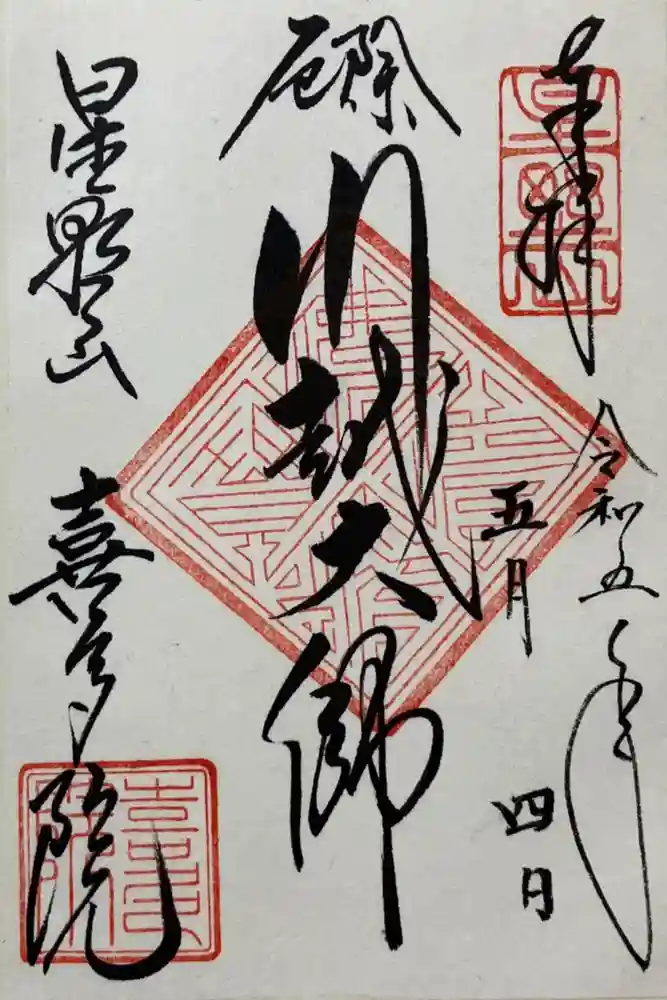 奉拝
令和五年
五月
四日
厄除
川越大師
星野山
喜多院